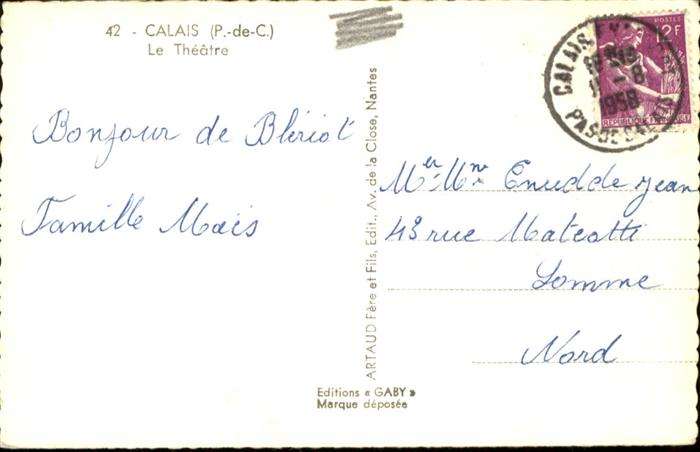 42 - CALAIS (P.-de-C.)
Le Théâtre
Bonjour de Blériot
Famille Maes
ARTAUD Fère et Fils, Edit., Av. de la Close, Nantes
Editions « GABY »
Marque déposée
CALAIS
11 - 8
1958
PAS DE CALAIS
POSTES
12F
REPUBLIQUE FRANÇAISE
Mer Mme Enudde Jean
43 rue Mateotti
Lomme
Nord